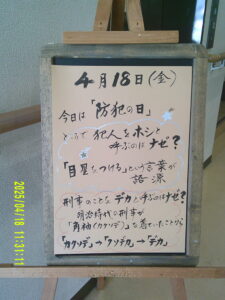 4月18日(金)
今日は「防犯の日」
ところで 犯人をホシと
呼ぶのは ナゼ?
「目星をつける」という言葉が
語源
刑事のことを デカと呼ぶのはナゼ?
明治時代の刑事が
「角袖(カクソデ)」を着ていたことから
「カクソデ」→「クソデカ」→「デカ」
2025/04/18 11:31:11